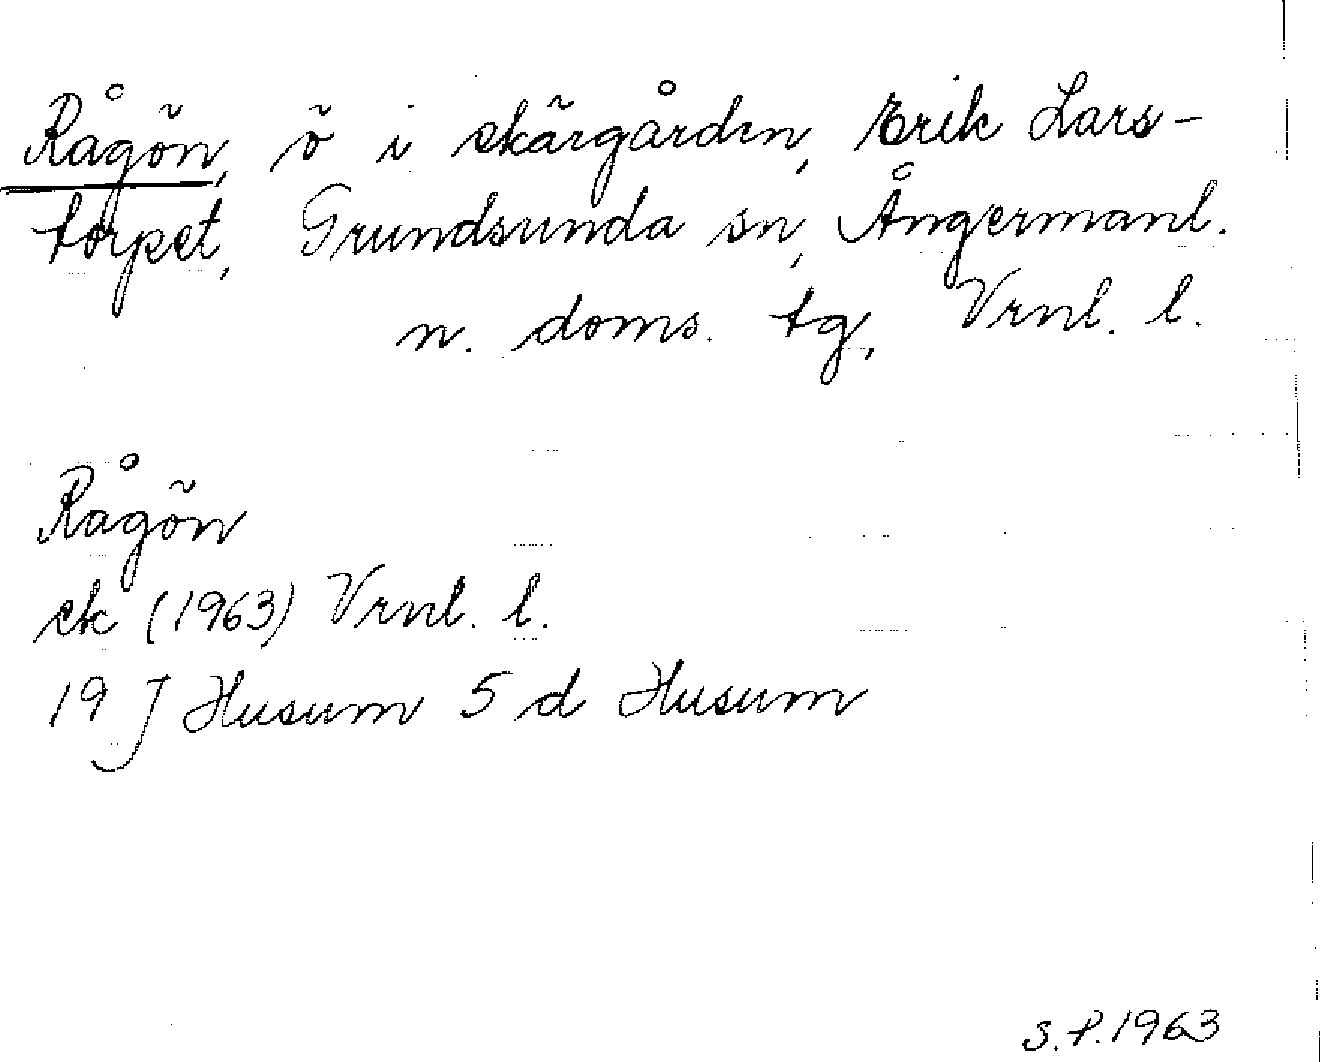 Rågön, ö i skärgården, Erik Lars-
torpet, Grundsunda sn, Ångermanl.
n. doms. tg, Vrnl. l.
Rågön
ek (1963) Vrnl. l.
19 J Husum 5 d Husum
S.P.1963